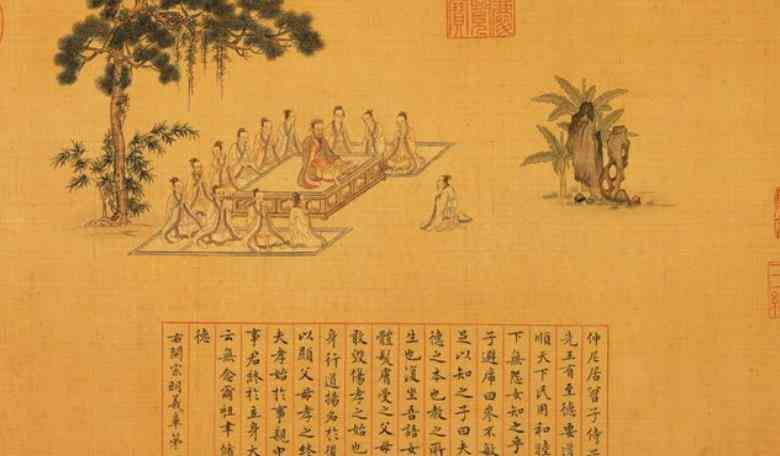 仲尼居曾子侍子
先王有至德要道
順天下民用和睦
下無怨女知之乎
子避席曰參不敏
足以知之子曰夫
德之本也教之所
生也復坐吾語女
體髮膚受之父母
敢毀傷孝之始也
身行道揚名於後
以顯父母孝之終
夫孝始於事親中
事君終於立身大
云無念爾祖聿脩
德
右開宗明義章第